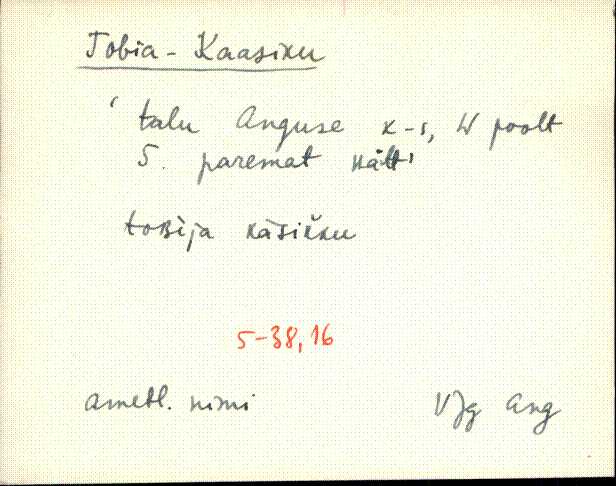 Tobia - Kaasiku
' talu Anguse k-s, W poolt
5. paremat kätt '
toʙìja kàsikku
5-38,16
ametl. nimi VJg Ang